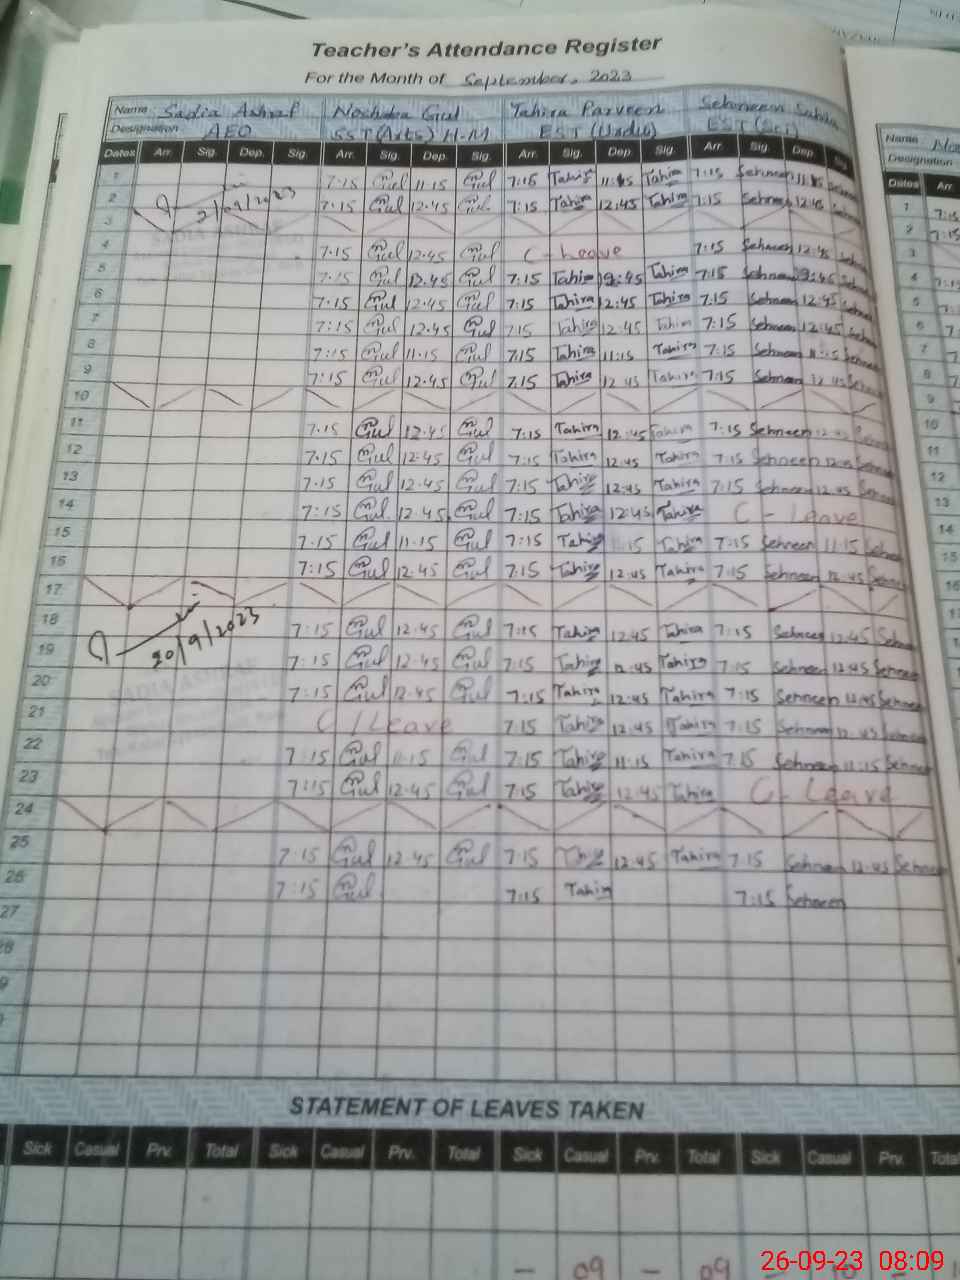 Teacher's Attendance Register
For the Month of September, 2023
Name Sadia Ashraf Noshaba Gul Tahira Parveen Sehreen
Designation AEO SST(Arts) H.M EST (Urdu) EST (Sci)
Dates Arr. Sig. Dep. Sig. Arr. Sig. Dep. Sig. Arr. Sig. Dep. Sig. Arr. Sig. Dep. Sig.
1 7:15 Gul 11:15 Gul 7:15 Tahira 11:15 Tahira 7:15 Sehreen 11:15 Sehreen
2 2/09/2023 7:15 Gul 12:45 Gul 7:15 Tahira 12:45 Tahira 7:15 Sehreen 12:45 Sehreen
3
4 7:15 Gul 12:45 Gul C-Leave 7:15 Sehreen 12:45 Sehreen
5 7:15 Gul 12:45 Gul 7:15 Tahira 12:45 Tahira 7:15 Sehreen 12:45 Sehreen
6 7:15 Gul 12:45 Gul 7:15 Tahira 12:45 Tahira 7:15 Sehreen 12:45 Sehreen
7 7:15 Gul 12:45 Gul 7:15 Tahira 12:45 Tahira 7:15 Sehreen 12:45 Sehreen
8 7:15 Gul 11:15 Gul 7:15 Tahira 11:15 Tahira 7:15 Sehreen 11:15 Sehreen
9 7:15 Gul 12:45 Gul 7:15 Tahira 12:45 Tahira 7:15 Sehreen 12:45 Sehreen
10
11 7:15 Gul 12:45 Gul 7:15 Tahira 12:45 Tahira 7:15 Sehreen 12:45 Sehreen
12 7:15 Gul 12:45 Gul 7:15 Tahira 12:45 Tahira 7:15 Sehreen 12:45 Sehreen
13 7:15 Gul 12:45 Gul 7:15 Tahira 12:45 Tahira 7:15 Sehreen 12:45 Sehreen
14 7:15 Gul 12:45 Gul 7:15 Tahira 12:45 Tahira C-Leave
15 7:15 Gul 11:15 Gul 7:15 Tahira 11:15 Tahira 7:15 Sehreen 11:15 Sehreen
16 7:15 Gul 12:45 Gul 7:15 Tahira 12:45 Tahira 7:15 Sehreen 12:45 Sehreen
17
18 7:15 Gul 12:45 Gul 7:15 Tahira 12:45 Tahira 7:15 Sehreen 12:45 Sehreen
19 20/9/2023 7:15 Gul 12:45 Gul 7:15 Tahira 12:45 Tahira 7:15 Sehreen 12:45 Sehreen
20 SADIA ASHRAF 7:15 Gul 12:45 Gul 7:15 Tahira 12:45 Tahira 7:15 Sehreen 12:45 Sehreen
21 C/Leave 7:15 Tahira 12:45 Tahira 7:15 Sehreen 12:45 Sehreen
22 7:15 Gul 11:15 Gul 7:15 Tahira 11:15 Tahira 7:15 Sehreen 11:15 Sehreen
23 7:15 Gul 12:45 Gul 7:15 Tahira 12:45 Tahira C-Leave
24
25 7:15 Gul 12:45 Gul 7:15 Tahira 12:45 Tahira 7:15 Sehreen 12:45 Sehreen
26 7:15 Gul 7:15 Tahira 7:15 Sehreen
27
STATEMENT OF LEAVES TAKEN
Sick Casual Prv. Total Sick Casual Prv. Total Sick Casual Prv. Total Sick Casual Prv. Total
- 09 - 09
26-09-23 08:09